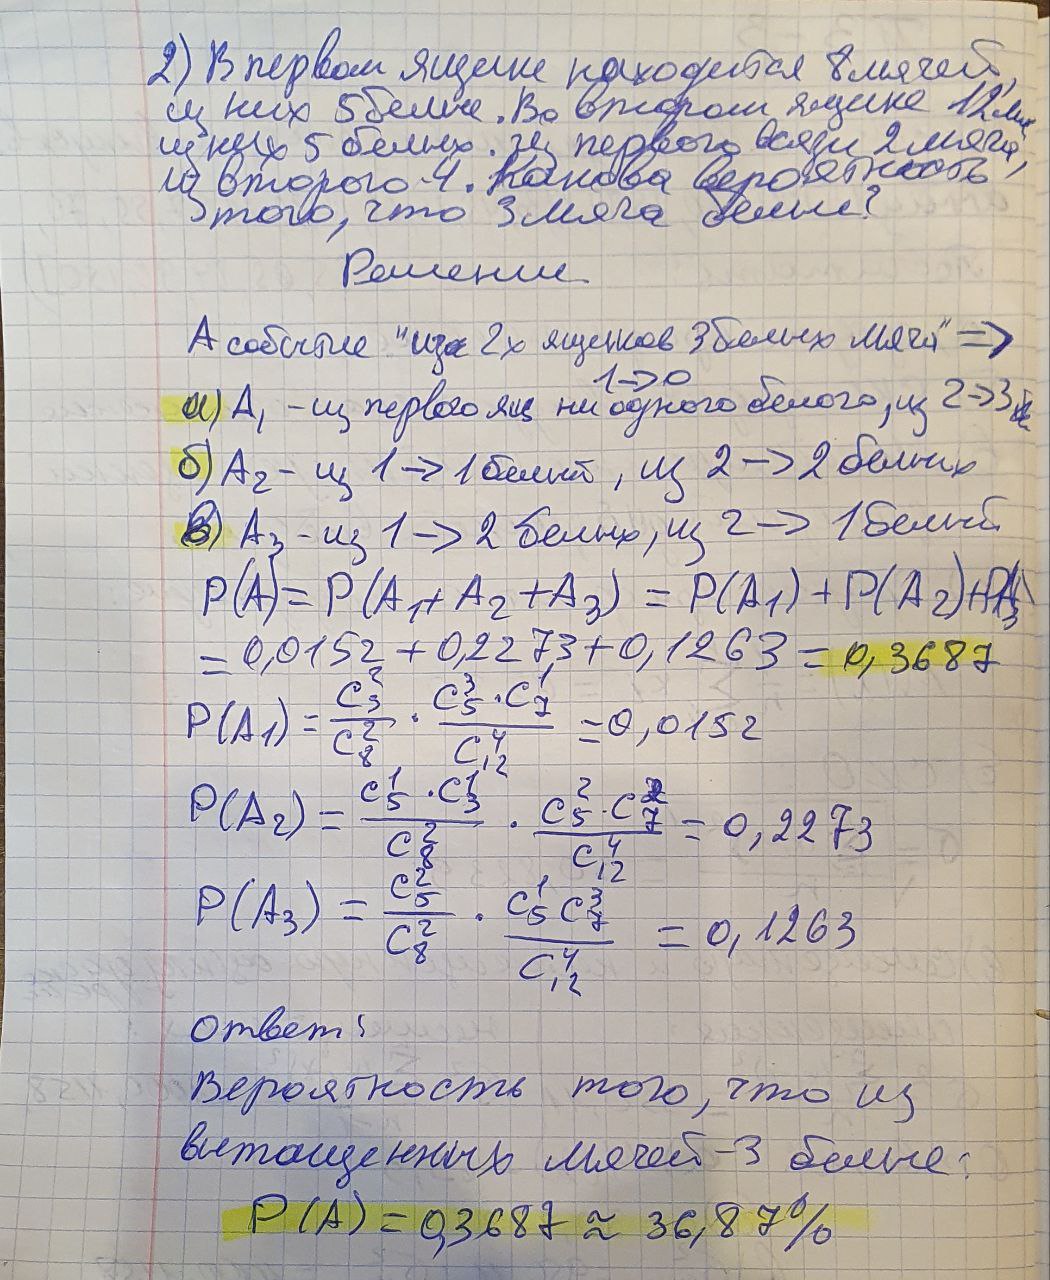 2) В первом ящике находится 8 мячей,
из них 5 белые. Во втором ящике 12 мяч
из них 5 белых. Из первого взяли 2 мяча,
из второго - 4. Какова вероятность
того, что 3 мяча белые?
Решение
А событие "из 2х ящиков 3 белых мяча" =>
1->0
а) A₁ - из первого ящ ни одного белого, из 2->3
б) A₂ - из 1 -> 1 белый, из 2 -> 2 белых
в) A₃ - из 1 -> 2 белых, из 2 -> 1 белый
P(A) = P(A₁ + A₂ + A₃) = P(A₁) + P(A₂) + P(A₃)
= 0,0152 + 0,2273 + 0,1263 = 0,3687
P(A₁) = C₃²/C₈² · C₅³ · C₇¹/C₁₂⁴ = 0,0152
P(A₂) = C₅¹ · C₃¹/C₈² · C₅² · C₇²/C₁₂⁴ = 0,2273
P(A₃) = C₅²/C₈² · C₅¹ C₇³/C₁₂⁴ = 0,1263
Ответ:
Вероятность того, что из
вытащенных мячей - 3 белые:
P(A) = 0,3687 ≈ 36,87%